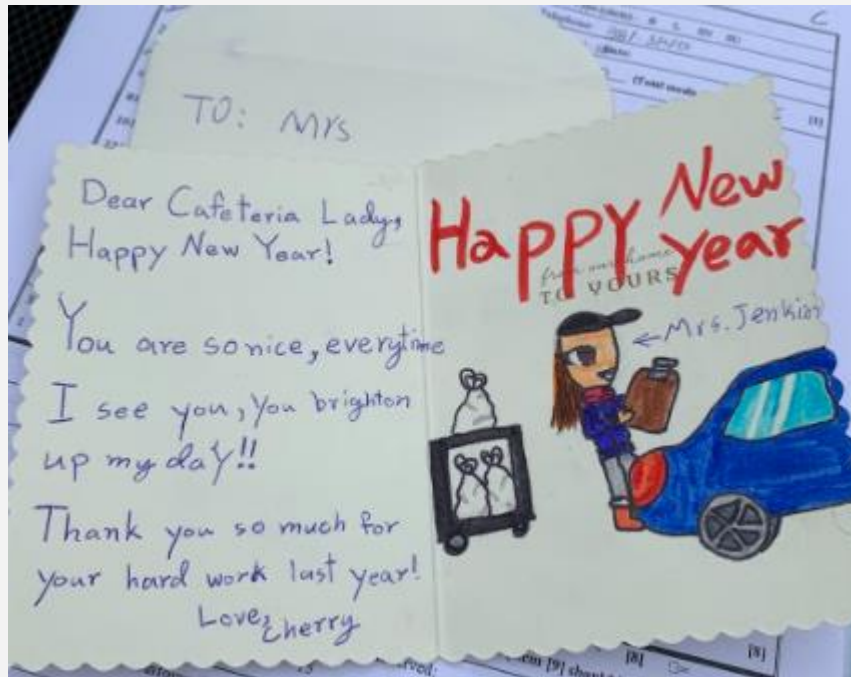 TO: Mrs
Dear Cafeteria Lady,
Happy New Year!
You are so nice, everytime
I see you, you brighton
up my day!!
Thank you so much for
your hard work last year!
Love, Cherry
Happy New
year
from our home
TO YOURS
←Mrs. Jenkins
(Total meals
[8]
[8]